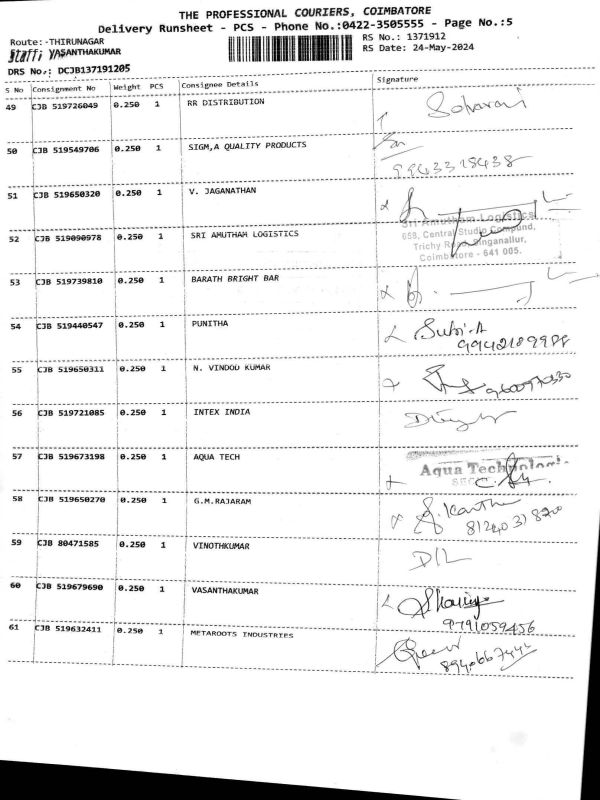 THE PROFESSIONAL COURIERS, COIMBATORE
Delivery Runsheet - PCS - Phone No.:0422-3505555 - Page No.:5
Route:-THIRUNAGAR
RS No.: 1371912
Staff: VASANTHAKUMAR
RS Date: 24-May-2024
DRS No.: DCJB137191205
S No Consignment No Weight PCS Consignee Details Signature
49 CJB 519726049 0.250 1 RR DISTRIBUTION
50 CJB 519549706 0.250 1 SIGM,A QUALITY PRODUCTS
9943328438
51 CJB 519650320 0.250 1 V. JAGANATHAN
52 CJB 519090978 0.250 1 SRI AMUTHAM LOGISTICS
Sri Amutham Logistics
658, Central Studio Compund,
Trichy Road, Singanallur,
Coimbatore - 641 005.
53 CJB 519739810 0.250 1 BARATH BRIGHT BAR
54 CJB 519440547 0.250 1 PUNITHA
9942189988
55 CJB 519650311 0.250 1 N. VINDOD KUMAR
56 CJB 519721085 0.250 1 INTEX INDIA
57 CJB 519673198 0.250 1 AQUA TECH
Aqua Technologi
58 CJB 519650270 0.250 1 G.M.RAJARAM
S. Karthi
81240318700
59 CJB 80471585 0.250 1 VINOTHKUMAR
D/L
60 CJB 519679690 0.250 1 VASANTHAKUMAR
9791059456
61 CJB 519632411 0.250 1 METAROOTS INDUSTRIES
8940667444